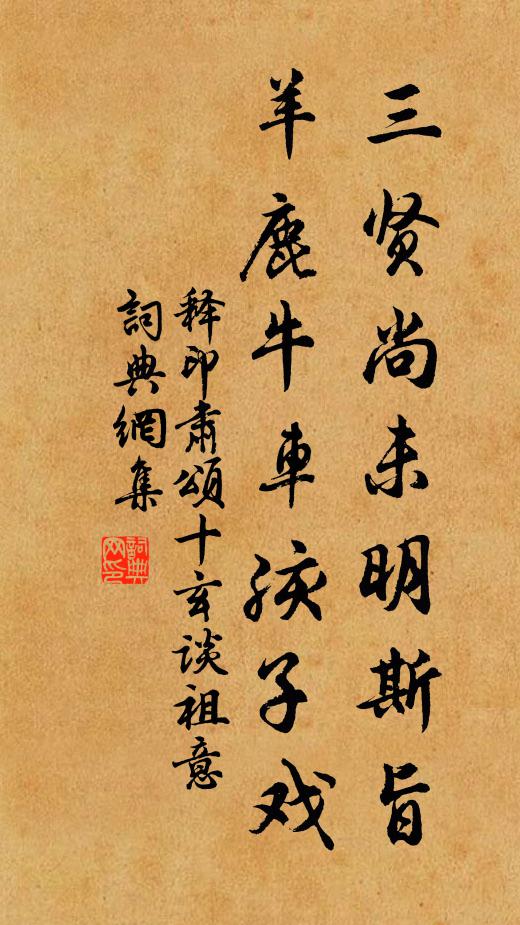 三贤尚未明斯旨
羊鹿牛車孩子戏
释印肃頌十玄谈祖意
詞典網集
詞典
网印